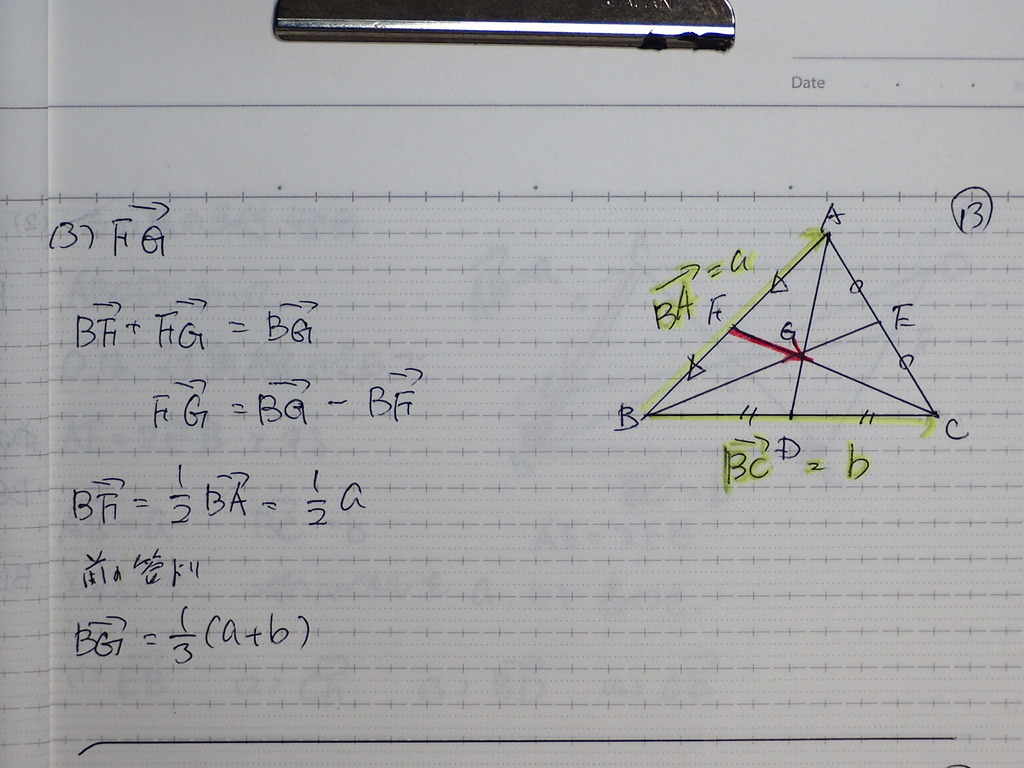 Date
(3) FG→
13
BF→ + FG→ = BG→
FG→ = BG→ - BF→
BF→ = 1/2 BA→ = 1/2 a
前の答より
BG→ = 1/3 (a+b)
A
BA→ = a
F
G
E
B
D
C
BC→ = b